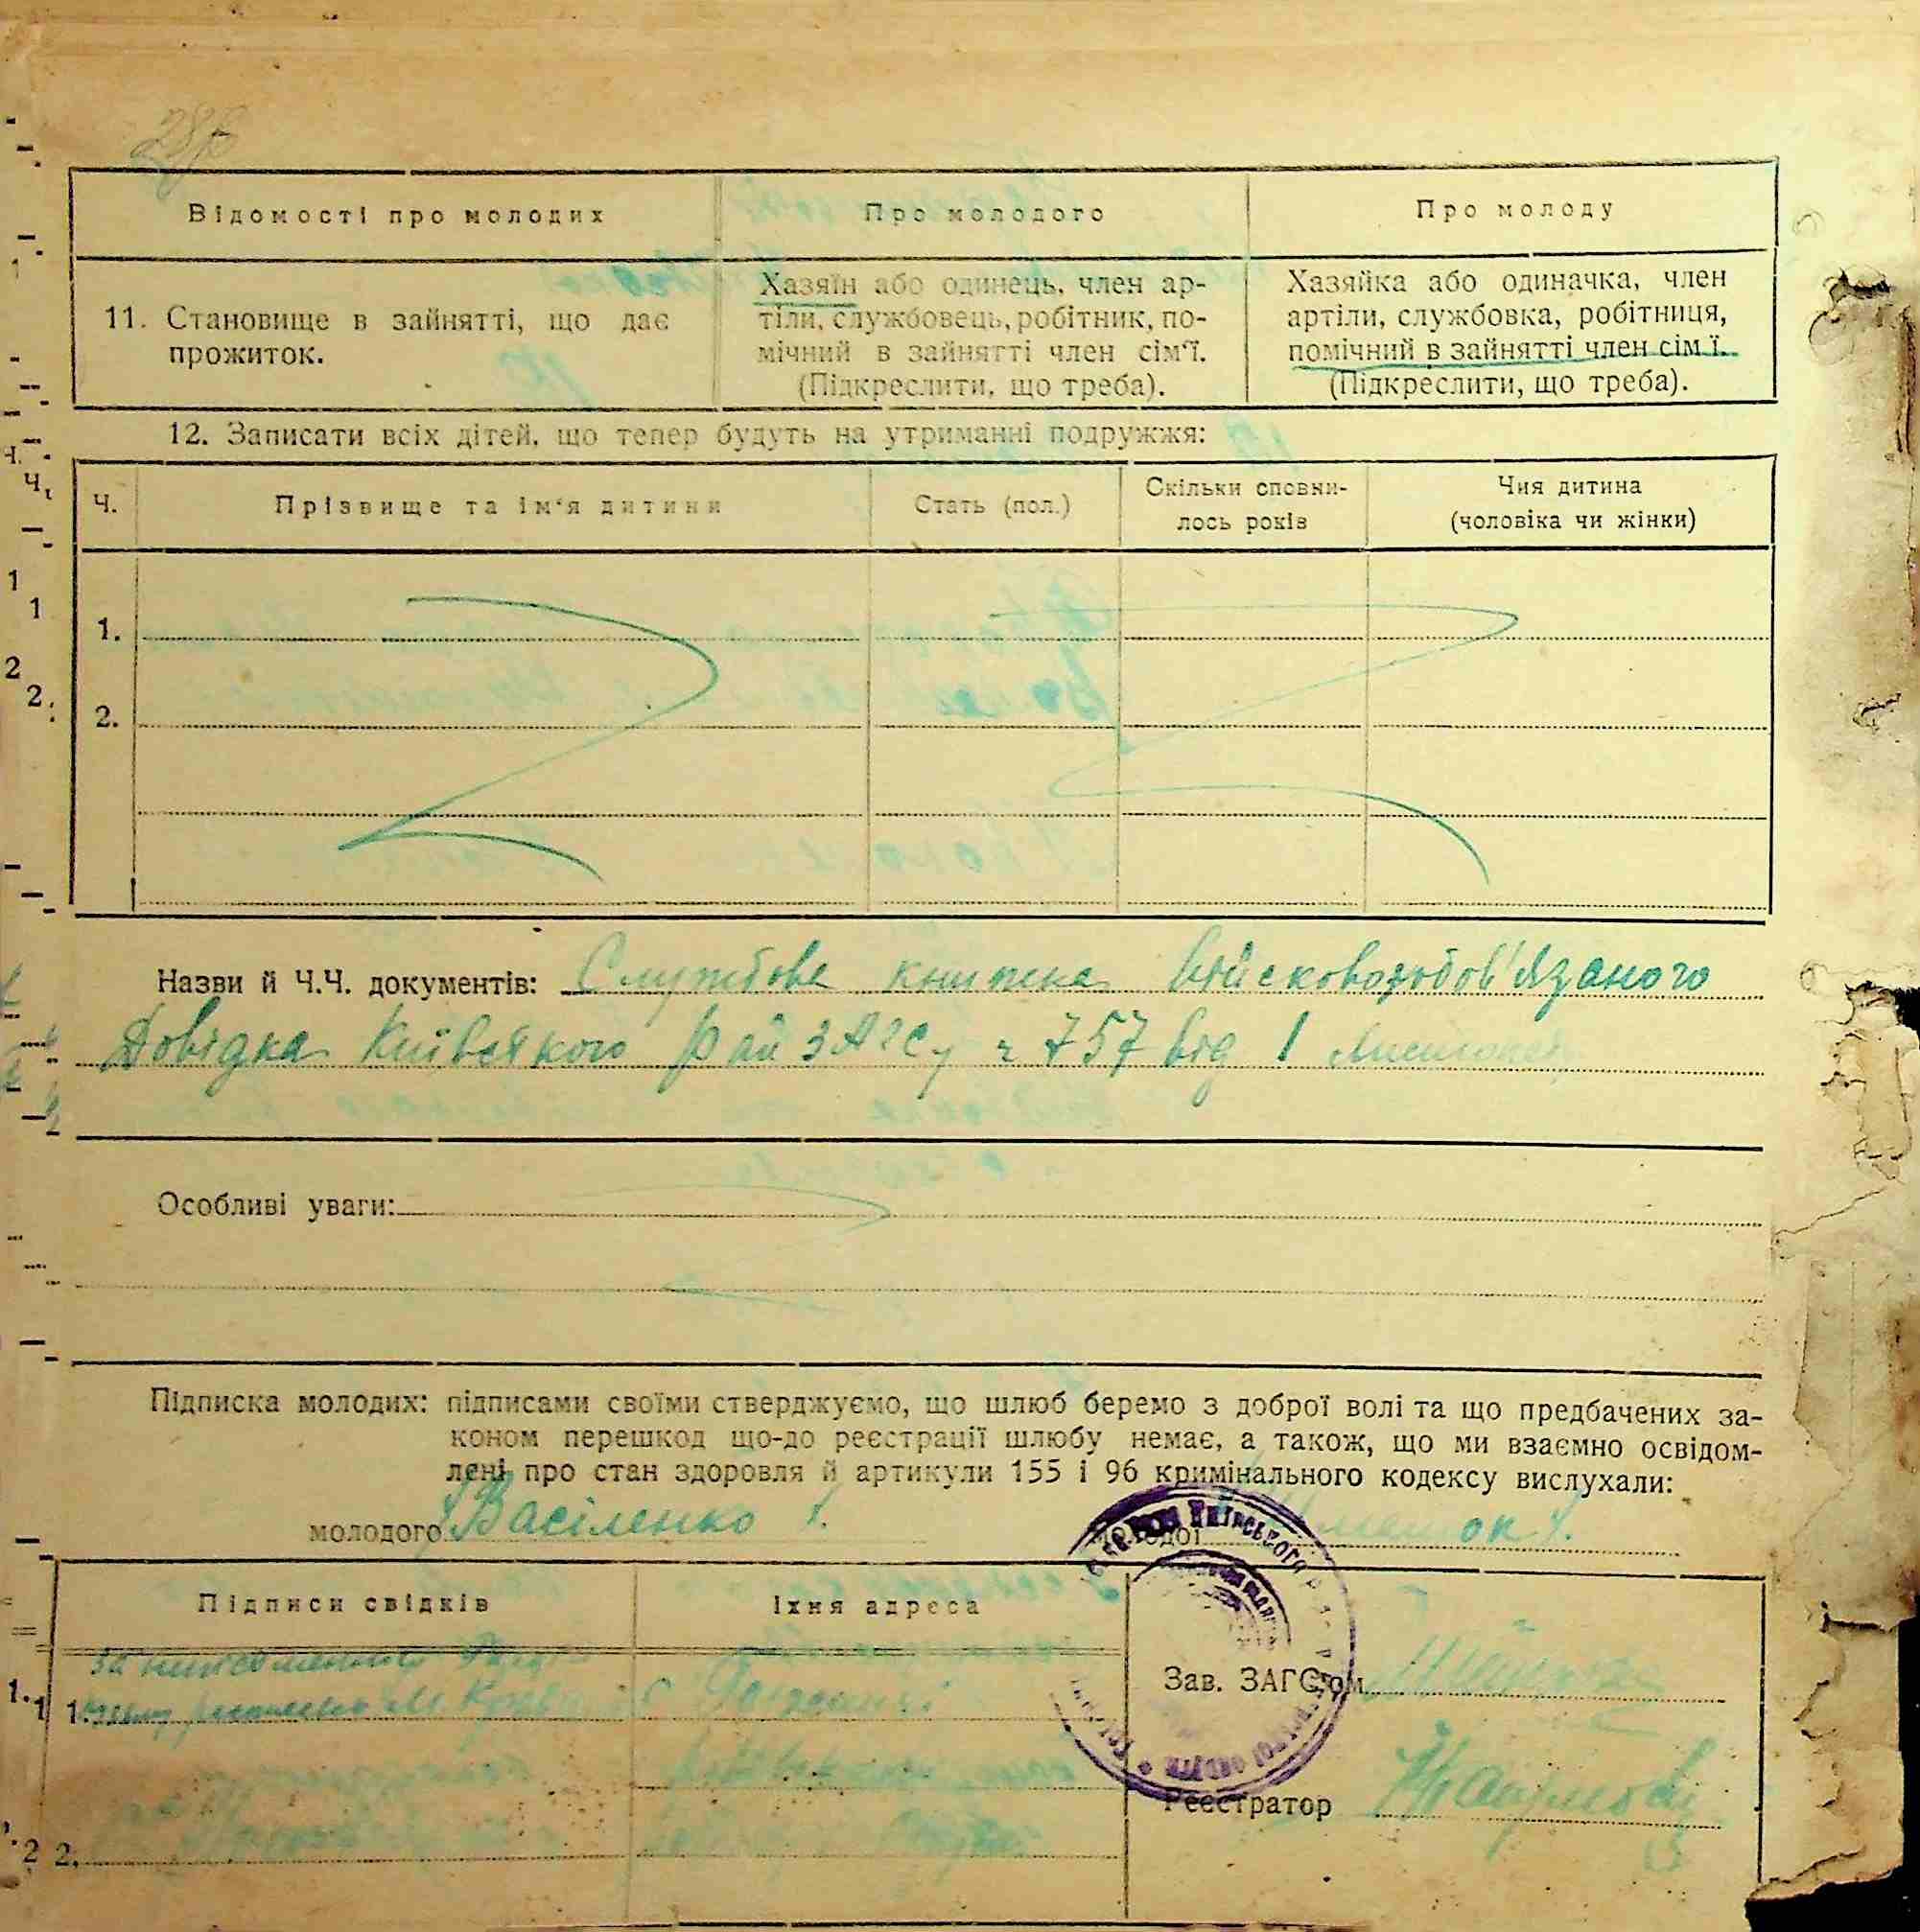 Відомості про молодих
Про молодого
Про молоду
11. Становище в зайнятті, що дає
прожиток.
Хазяїн або одинець, член ар-
тіли, службовець, робітник, по-
мічний в зайнятті член сім'ї.
(Підкреслити, що треба).
Хазяйка або одиначка, член
артіли, службовка, робітниця,
помічний в зайнятті член сім'ї.
(Підкреслити, що треба).
12. Записати всіх дітей, що тепер будуть на утриманні подружжя:
Ч.
Прізвище та ім'я дитини
Стать (пол.)
Скільки сповни-
лось років
Чия дитина
(чоловіка чи жінки)
1.
2.
Назви й Ч.Ч. документів: Службова книжка військовозобов'язаного
Довідка Київського Рай ЗАГСу ч 757 від 1 листопад
Особливі уваги:
Підписка молодих: підписами своїми стверджуємо, що шлюб беремо з доброї волі та що предбачених за-
коном перешкод що-до реєстрації шлюбу немає, а також, що ми взаємно освідом-
лені про стан здоровля й артикули 155 і 96 кримінального кодексу вислухали:
молодого Василенко І.
молодої
Підписи свідків
Їхня адреса
1.
Зав. ЗАГС'ом
2.
Реєстратор